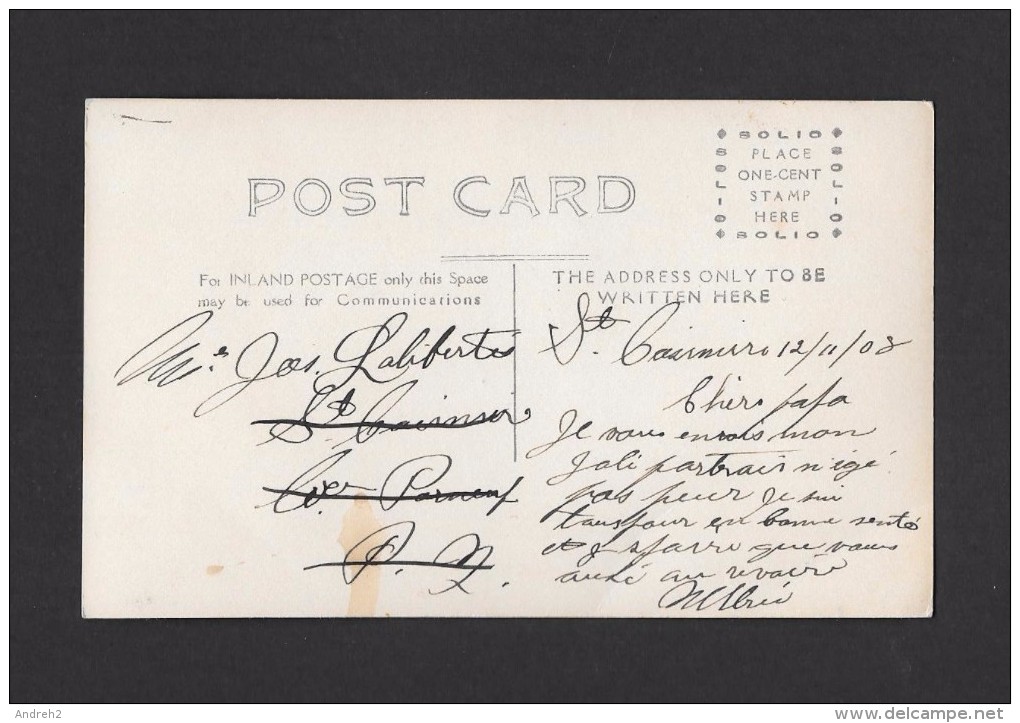 POST CARD
SOLIO
SOLIO
PLACE
ONE-CENT
STAMP
HERE
SOLIO
SOLIO
For INLAND POSTAGE only this Space
may be used for Communications
THE ADDRESS ONLY TO BE
WRITTEN HERE
Mr Jos. Laliberté
St. Casimir
Co. Porneuf
P. Q.
St. Casimir 12/11/08
Cher papa
Je vous envois mon
Joli portrait n'igé
pas peur Je sui
toujour en bonne senté
et J'
que vous
aussi au revoire
Andreh2
delcampe.net